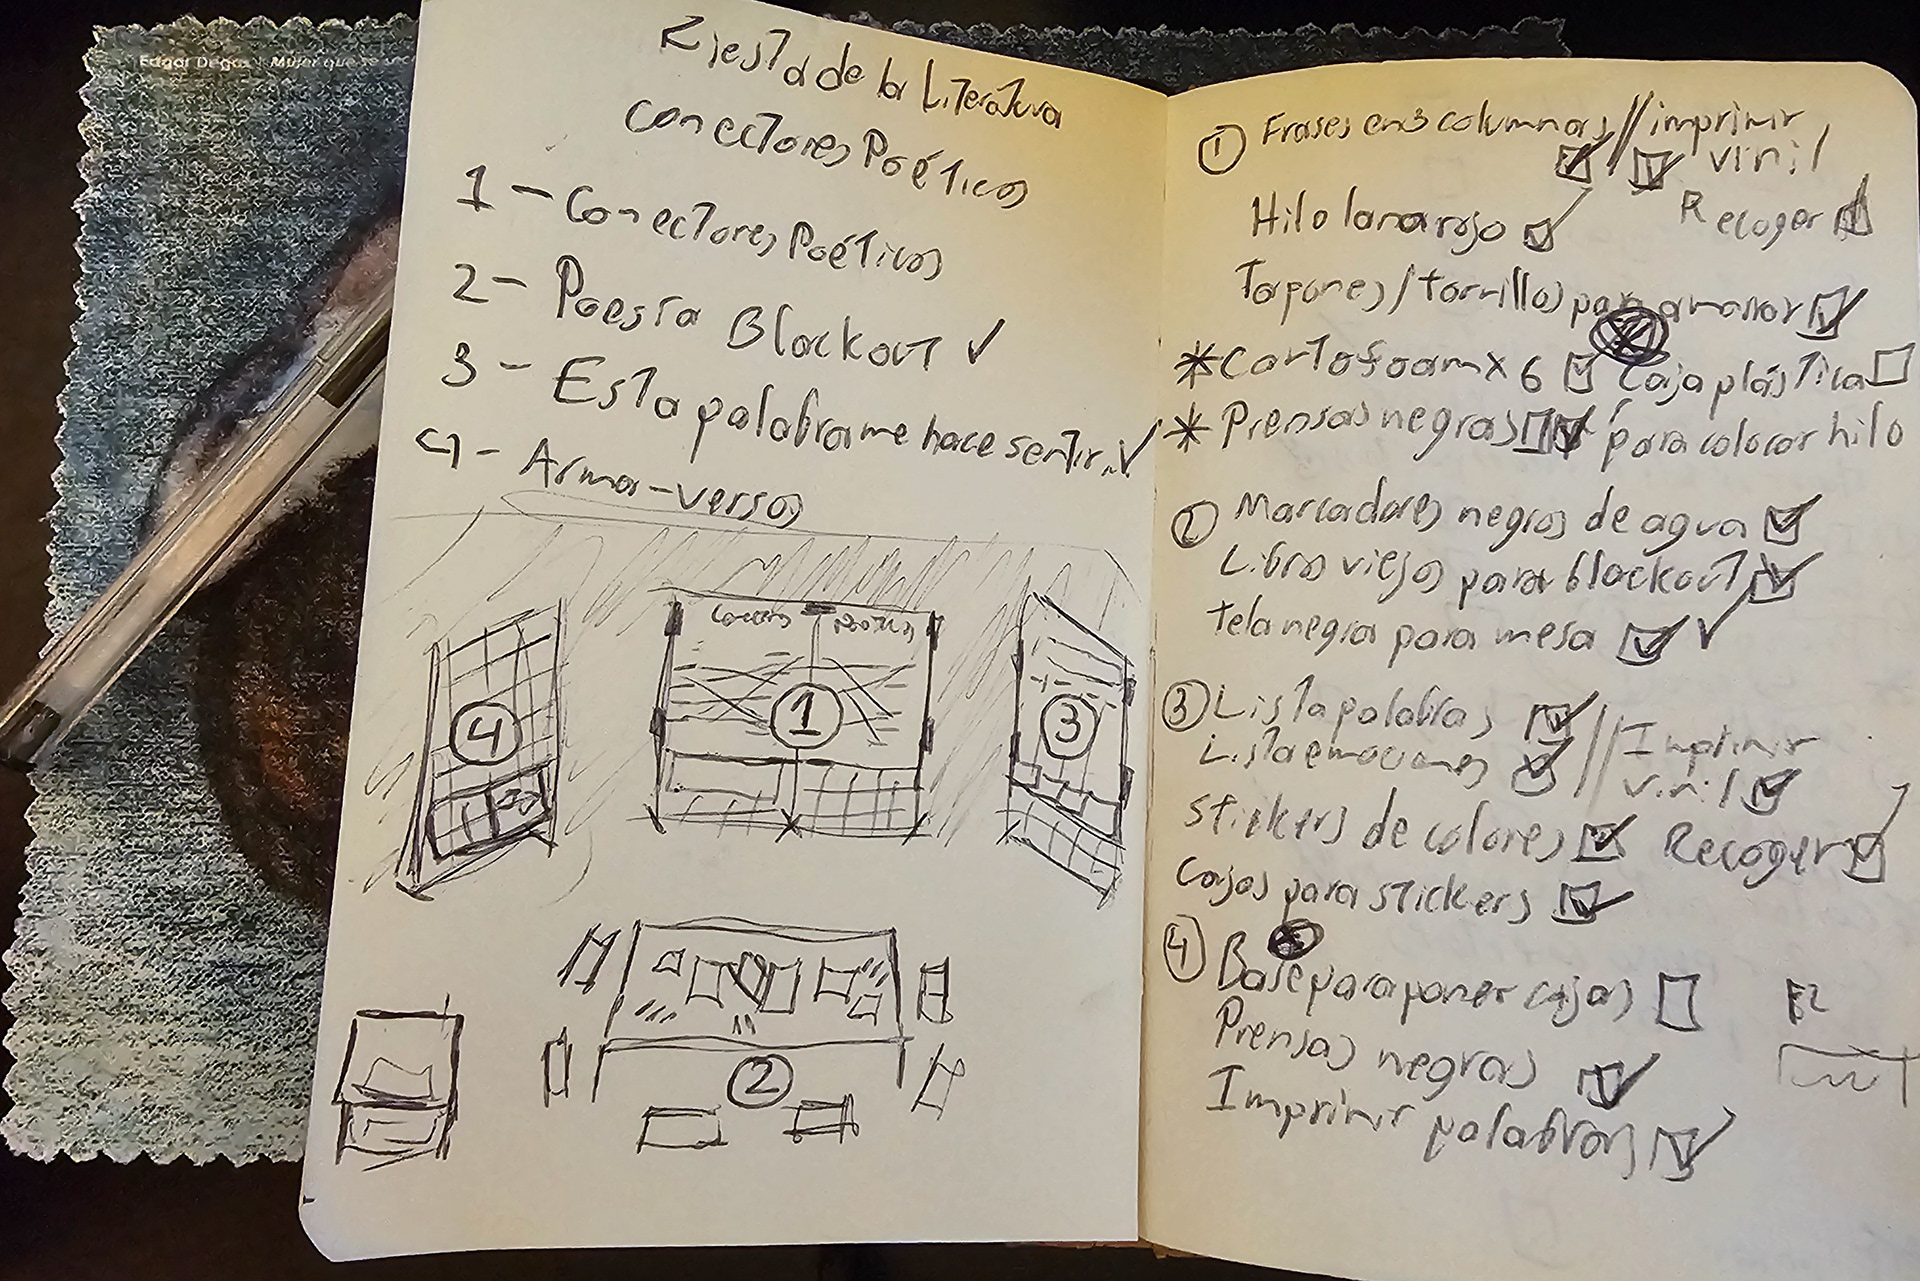 Edgar Degas | Mujer que se sec
Fiesta de la Literatura
Conectores Poéticos
1 - Conectores Poéticos
2 - Poesía Blackout ✓
3 - Esta palabra me hace sentir... ✓
4 - Arma-versos
4
1
3
2
① Frases en 3 columnas // imprimir
vinil
Hilo lana rojo
Recoger
Tapones/tornillos para amarrar
* Cartofoam x 6 Caja plástica
* Prensas negras para colocar hilo
② Marcadores negros de agua
Libros viejos para blackout
tela negra para mesa ✓
③ Lista palabras // Imprimir
Lista emociones vinil
stickers de colores Recoger
Cajas para stickers
④ Base para poner cajas
Prensas negras
Imprimir palabras